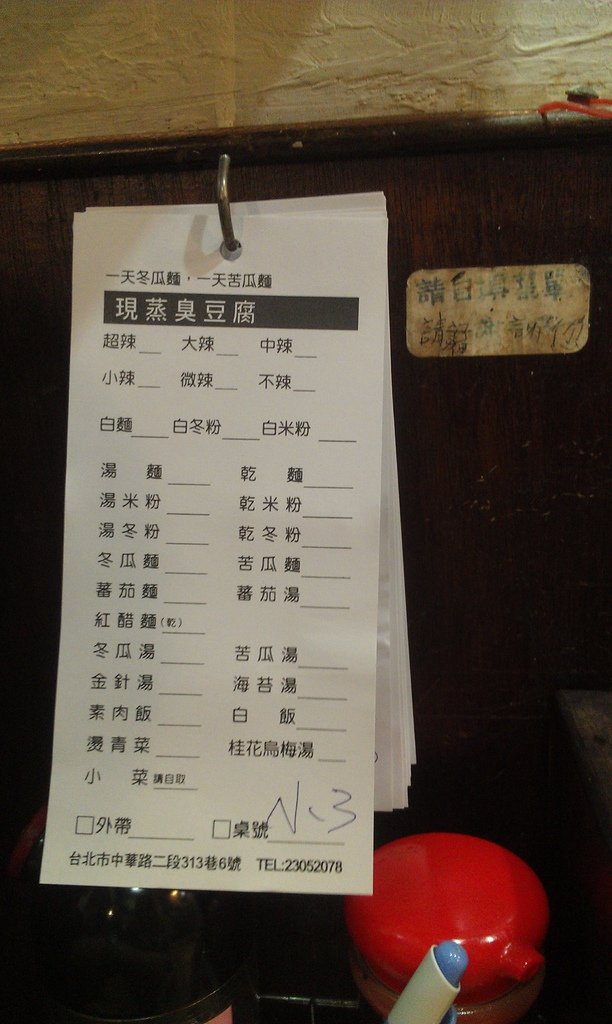 一天冬瓜麵，一天苦瓜麵
現蒸臭豆腐
超辣___ 大辣___ 中辣___
小辣___ 微辣___ 不辣___
白麵____ 白冬粉____ 白米粉____
湯麵____ 乾麵____
湯米粉____ 乾米粉____
湯冬粉____ 乾冬粉____
冬瓜麵____ 苦瓜麵____
蕃茄麵____ 蕃茄湯____
紅醋麵(乾)____
冬瓜湯____ 苦瓜湯____
金針湯____ 海苔湯____
素肉飯____ 白飯____
燙青菜____ 桂花烏梅湯___
小菜請自取
□外帶____ □桌號 N-3
台北市中華路二段313巷6號 TEL:23052078
請自填菜單